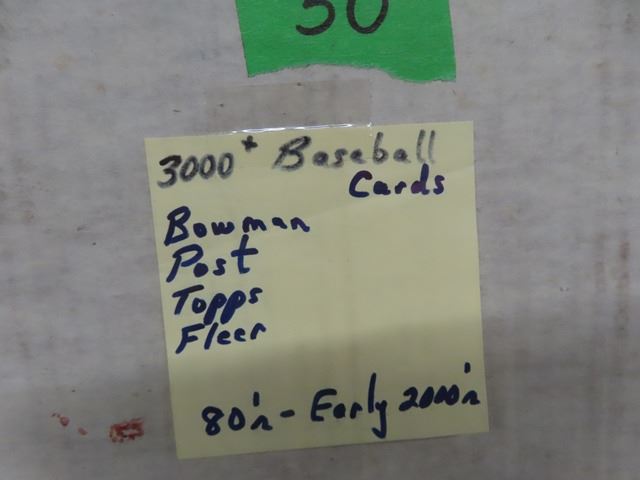 50
3000+ Baseball
Cards
Bowman
Post
Topps
Fleer
80's - Early 2000's